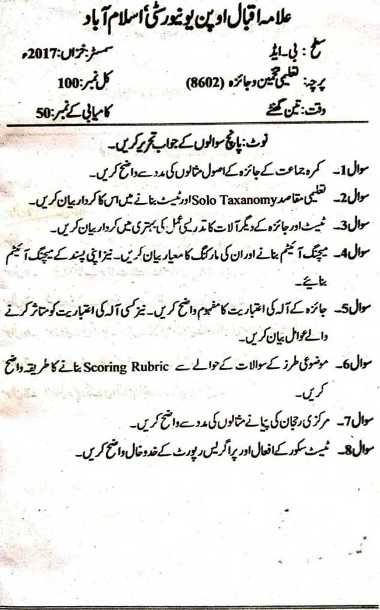 علامہ اقبال اوپن یونیورسٹی، اسلام آباد
سطح : بی۔ایڈ سمسٹر: خزاں: 2017ء
پرچہ: تعلیمی تخمین و جائزہ (8602) کل نمبر: 100
وقت: تین گھنٹے کامیابی کے نمبر: 50
نوٹ: پانچ سوالوں کے جواب تحریر کریں۔
سوال 1۔ کمرہ جماعت کے جائزہ کے اصول مثالوں کی مدد سے واضح کریں۔
سوال 2۔ تعلیمی مقاصد Solo Taxanomy اور ٹیسٹ بنانے میں اس کا کردار بیان کریں۔
سوال 3۔ ٹیسٹ اور جائزہ کے دیگر آلات کا تدریسی عمل کی بہتری میں کردار بیان کریں۔
سوال 4۔ میچنگ آئیٹم بنانے اور ان کی مارکنگ کا معیار بیان کریں۔ نیز اپنی پسند کے میچنگ آئیٹم
بنائیے۔
سوال 5۔ جائزہ کے آلہ کی اعتباریت کا مفہوم واضح کریں۔ نیز کسی آلہ کی اعتباریت کو متاثر کرنے
والے عوامل بیان کریں۔
سوال 6۔ موضوعی طرز کے سوالات کے حوالے سے Scoring Rubric بنانے کا طریقہ واضح
کریں۔
سوال 7۔ مرکزی رجحان کی پیمانے مثالوں کی مدد سے واضح کریں۔
سوال 8۔ ٹیسٹ سکور کے افعال اور پراگریس رپورٹ کے خدوخال واضح کریں۔